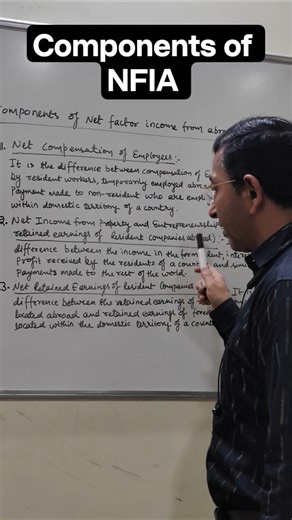 Components of
NFIA
Components of Net factor income from abro
1. Net Compensation of Employees:-
It is the difference between compensation of E
by resident workers, temporarily employed abroa
Payment made to non-resident who are empl
within domestic territory of a country.
2. Net Income from Property and Entrepreneurship
retained earnings of Resident companies abroad) :-
difference between the income in the form rent, inter
Profit received by the residents of a country and simi
Payments made to the rest of the world.
3. Net Retained Earnings of Resident Companies It i
difference between the retained earnings of
located abroad and retained earnings of forei
located within the domestic territory of a count